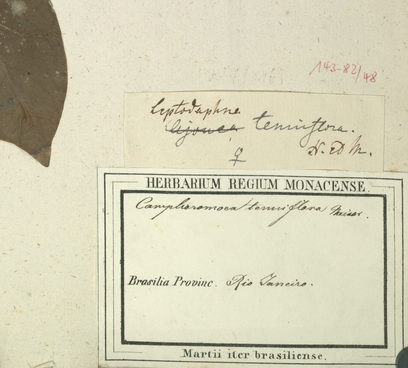 143-82/48
Leptodaphne
tenuiflora.
♀ N. ab E.
HERBARIUM REGIUM MONACENSE.
Camphoromoea tenuiflora Meisn.
Brasilia Provinc. Rio Janeiro.
Martii iter brasiliense.